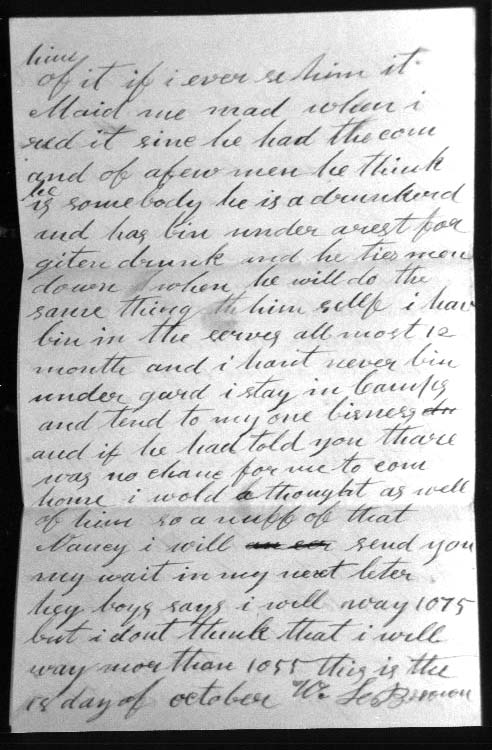 him
of it if i ever se him it
Maid me mad when i
red it sine he had the com
and of a few men he think
he
is some body he is a drunkerd
and has bin under arest for
giten drunk and he ties men
down when he will do the
same thing him sellf i hav
bin in the serves all most 12
month and i hant never bin
under gard i stay in Camps
and tend to my one bisness
and if he had told you thare
was no chanc for me to com
home i wold a thought as well
of him so a nuff of that
Nancy i will send you
my wait in my next leter
hey boys says i will way 1075
but i dont think that i will
way mor than 1055 this is the
15 day of october W. Brown